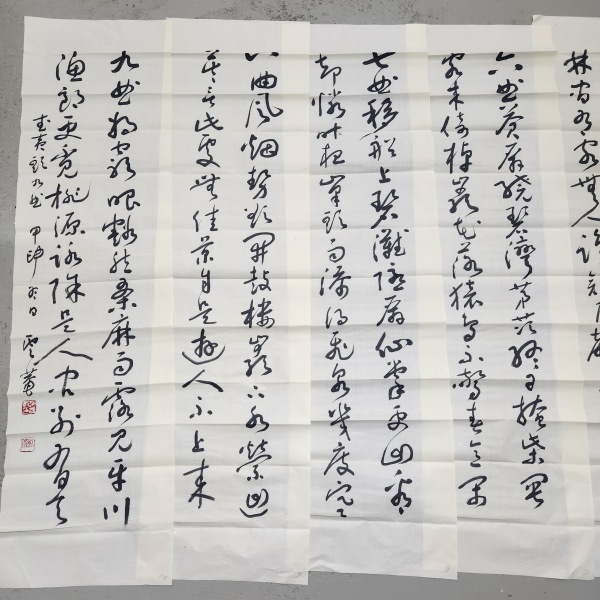 林間有客無人識
六曲蒼屏繞碧灣茆茨終日掩柴關
客來倚棹巖花落猿鳥不驚春意閑
七曲移船上碧灘隱屏仙掌更回看
却憐昨夜峯頭雨添得飛泉幾度寒
八曲風烟勢欲開鼓樓巖下水縈迴
莫言此處無佳景自是遊人不上來
九曲將窮眼豁然桑麻雨露見平川
漁郎更覓桃源路除是人間別有天
甲申